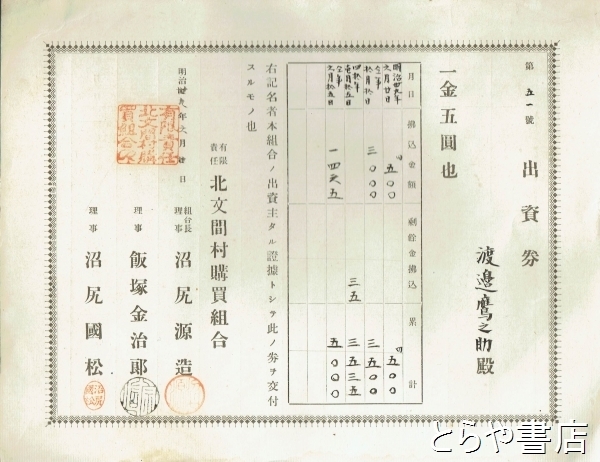 第五一號
出資券
渡邉鷹之助殿
一金五圓也
月日 拂込金額 剰餘金拂込 累計
明治卅九年六月廿日 五〇〇 五〇〇
仝年拾月拾日 三〇〇〇 三五〇〇
四拾年壱月拾五日 三五 三五三五
仝年六月拾五日 一四六五 五〇〇〇
右記名者本組合ノ出資主タル證據トシテ此ノ券ヲ交付
スルモノ也
有限責任 北文間村購買組合
明治卅九年六月廿日
組合長理事 沼尻源造
理事 飯塚金治郞
理事 沼尻國松
有限責任
北文間村購
買組合印
とらや書店